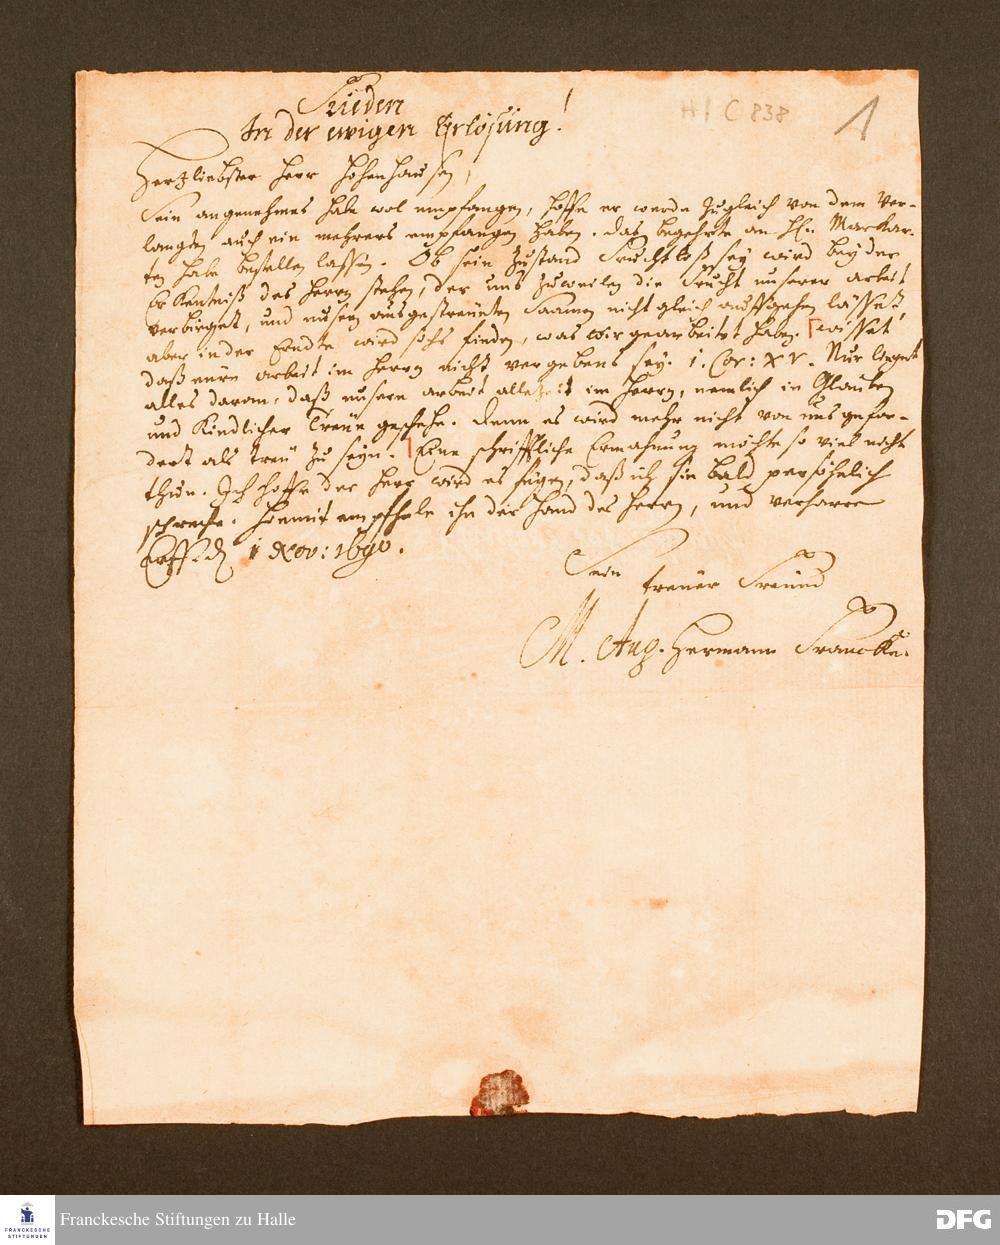 Frieden
In der ewigen Erlösung!
H I C 838
1
Hertzliebster Herr Hohenhausen,
Sein angenehmes habe wol empfangen, hoffe er werde zugleich von dem Ver-
langten auch ein mehrers empfangen haben. Das begehrte an H. Marckar-
ten habe bestellen lassen. Ob sein Zustand Fruchtloß sey wird bey der
Erkentniß des Herrn stehen, der uns zuweilen die Frucht unserer arbeit
verbirget, und unsern ausgestreueten Saamen nicht gleich auffgehen lässet,
aber in der Erndte wird sichs finden, was wir gearbeitet haben. Wisset
daß eure arbeit im Herrn nicht vergebens sey. 1. Cor: XV. Nur lieget
alles daran, daß unsere arbeit allezeit im Herrn, nemlich in Glauben
und Kindlicher Treue geschehe. Denn es wird mehr nicht von uns gefor-
dert als treu zu seyn. Eine schrifftliche Ermahnung möchte so viel nicht
thun. Ich hoffe der Herr wird es fügen, daß ich sie bald persöhnlich
spreche. Hiemit empfehle ihn der Hand des Herrn, und verharre
Erff. d. 1 Nov: 1690.
Sein
treuer Freund
M. Aug. Hermann Francke.
FRANCKESCHE
STIFTUNGEN
Franckesche Stiftungen zu Halle
DFG